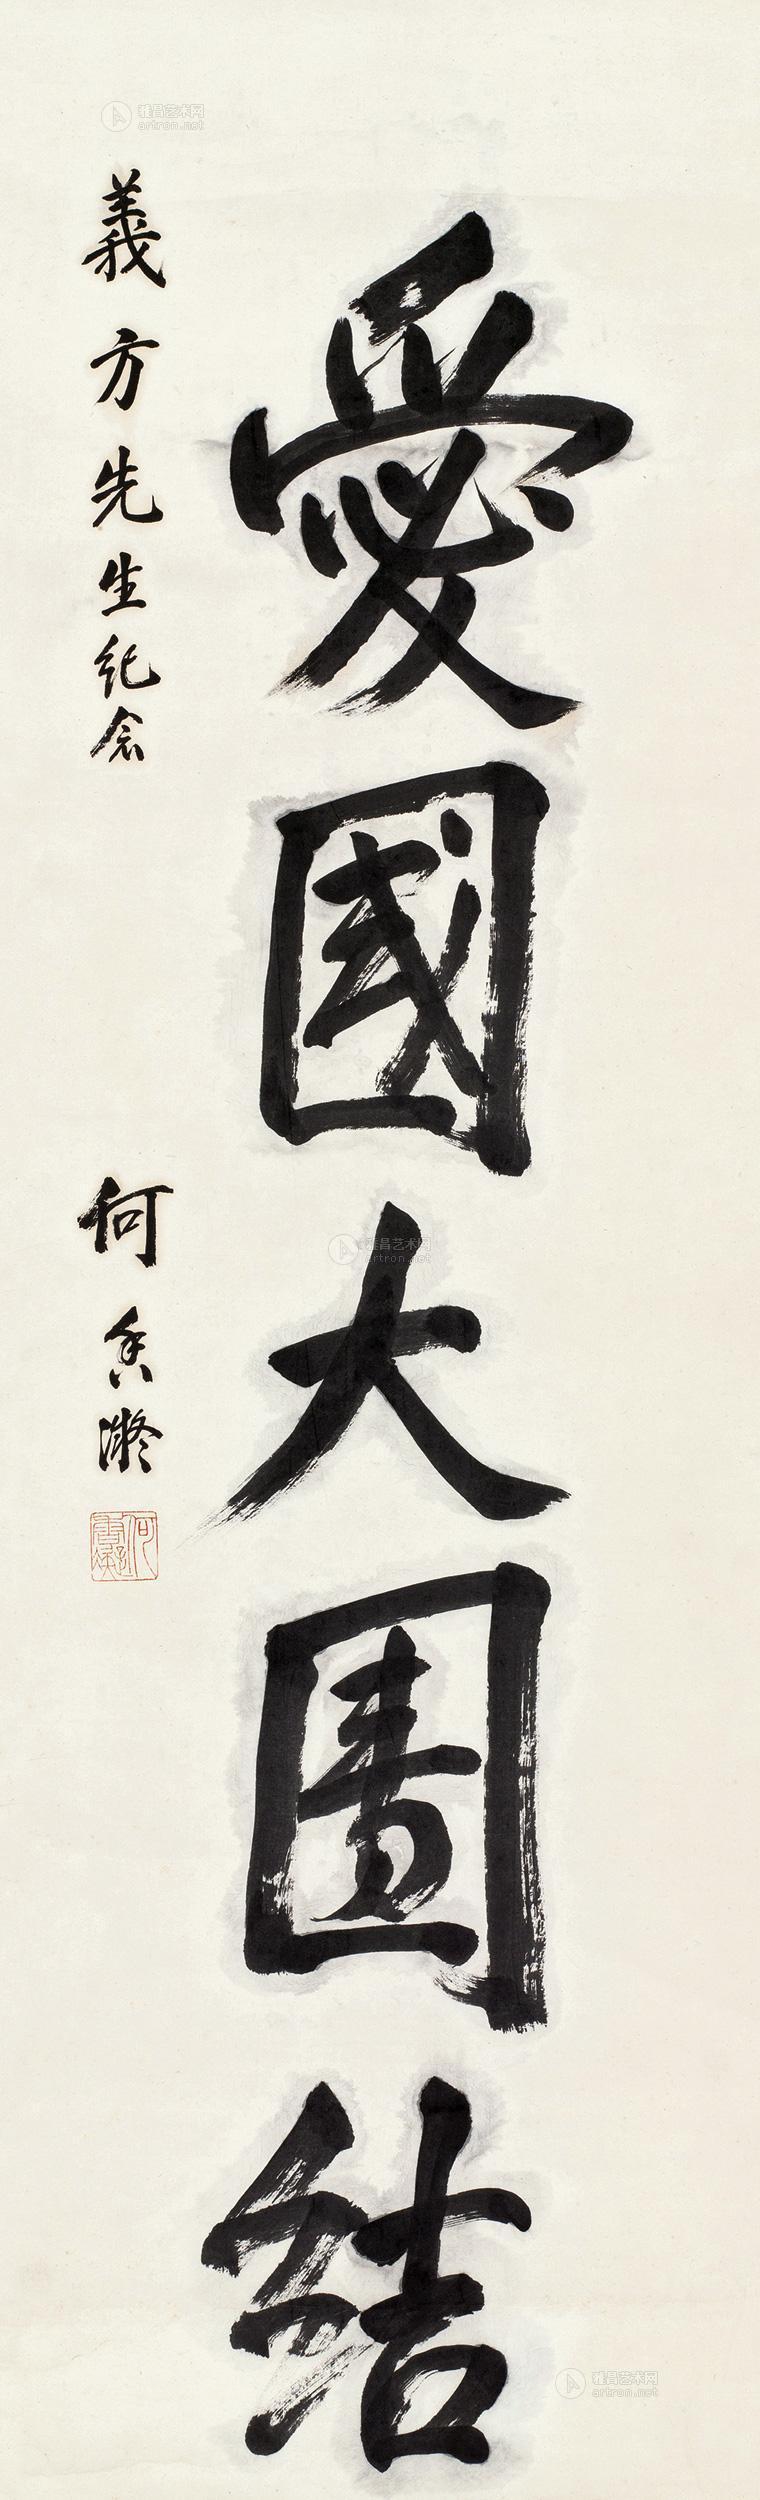 愛國大團結
義方先生紀念
何香凝
何香凝
雅昌艺术网
artron.net
雅昌艺术网
artron.net
雅昌艺术网
artron.net